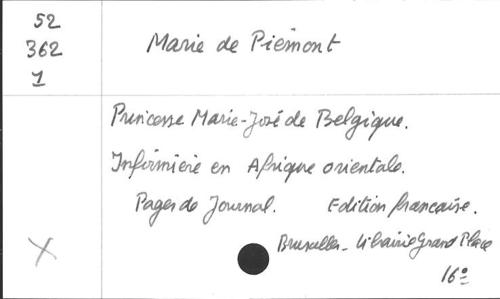 52
362
1
Marie de Piémont
Princesse Marie-José de Belgique.
Infirmière en Afrique orientale.
Pages de Journal. Edition française.
Bruxelles - Librairie Grand Place
16º
X